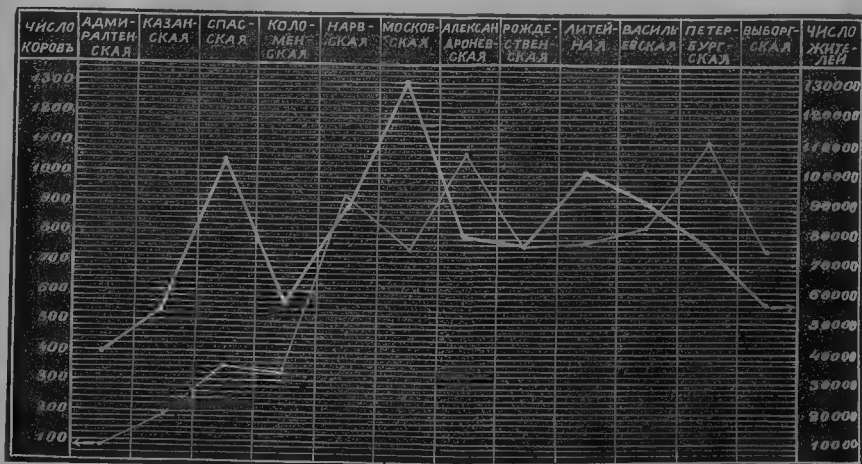 ЧИСЛО
КОРОВЪ
АДМИ-
РАЛТЕН-
СКАЯ
КАЗАН-
СКАЯ
СПАС-
СКАЯ
КОЛО-
МЕН-
СКАЯ
НАРВ-
СКАЯ
МОСКОВ-
СКАЯ
АЛЕКСАН
ДРОНЕВ-
СКАЯ
РОЖДЕ-
СТВЕН
СКАЯ
ЛИТЕЙ-
НАЯ
ВАСИЛЬ
ЕВСКАЯ
ПЕТЕР-
БУРГ-
СКАЯ
ВЫБОРГ-
СКАЯ
ЧИСЛО
ЖИТЕ-
ЛЕЙ
1300
1200
1100
1000
900
800
700
600
500
400
300
200
100
130000
120000
110000
100000
90000
80000
70000
60000
50000
40000
30000
20000
10000